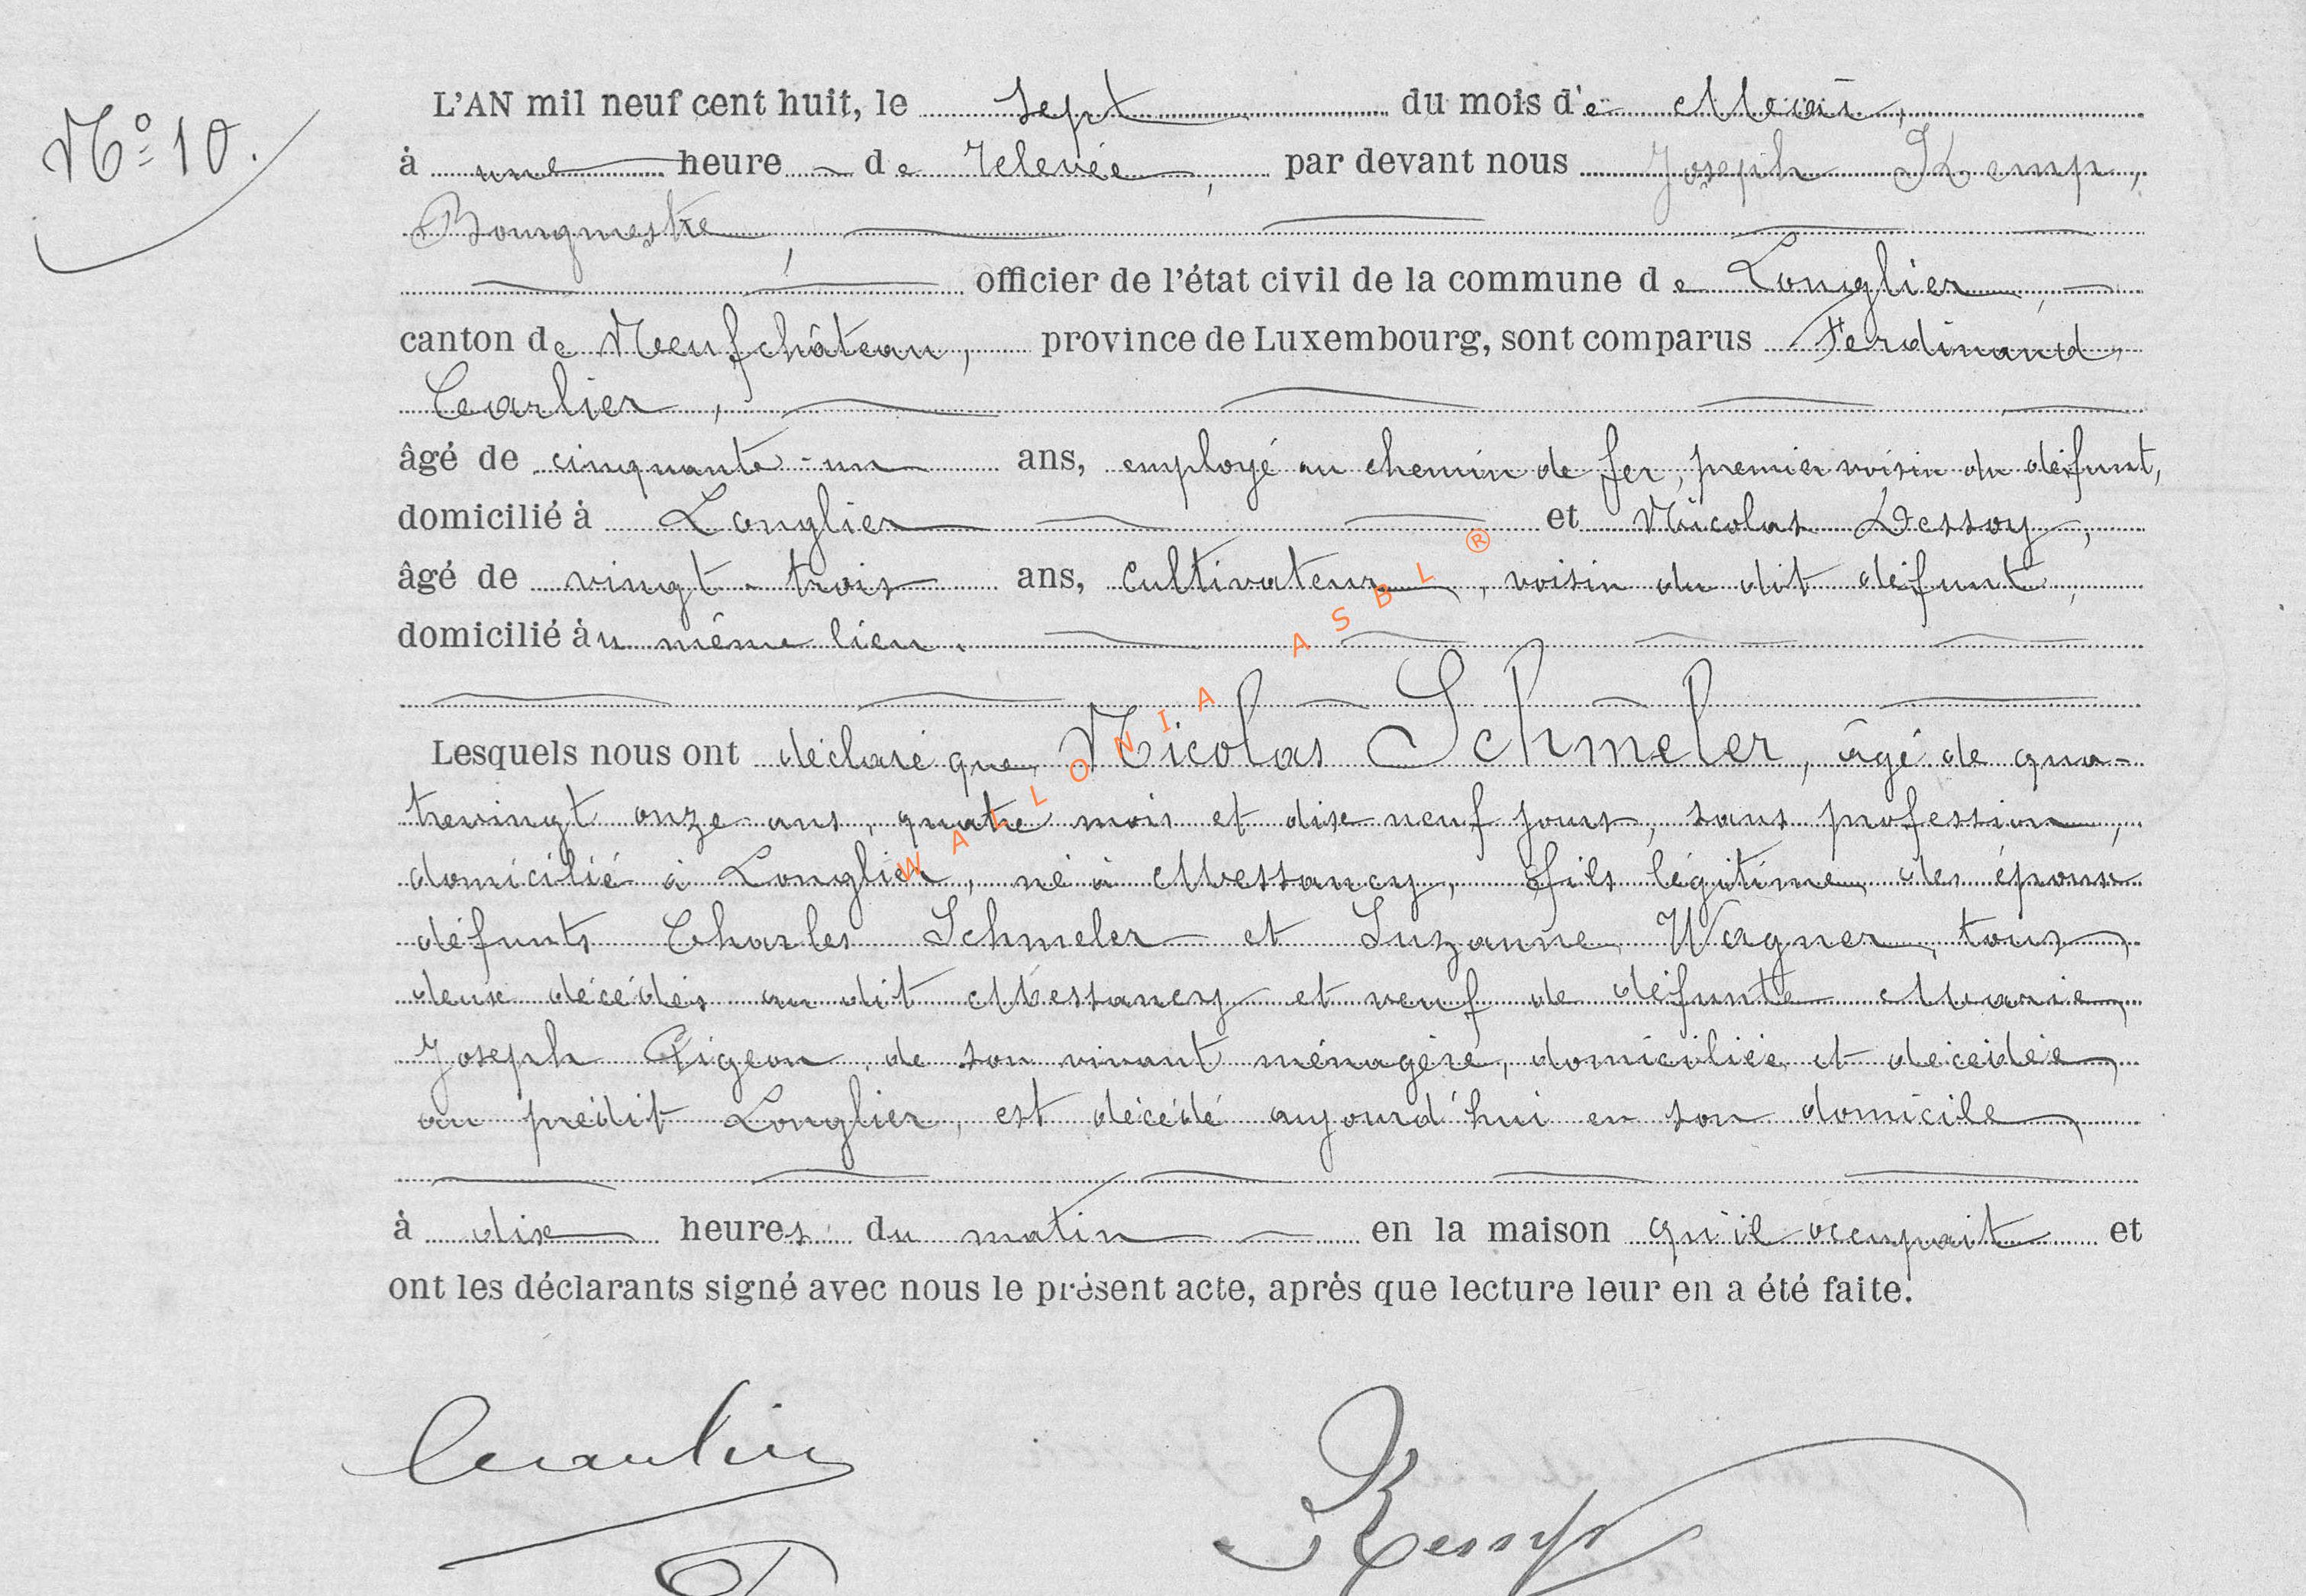 N° 10.
L'AN mil neuf cent huit, le sept du mois de Mai,
à une heure de relevée, par devant nous Joseph Kemp,
Bourgmestre,
officier de l'état civil de la commune de Longlier,
canton de Neufchâteau, province de Luxembourg, sont comparus Ferdinand
Carlier,
âgé de cinquante-un ans, employé au chemin de fer, premier voisin du défunt,
domicilié à Longlier et Nicolas Dessoy,
âgé de vingt-trois ans, cultivateur, voisin du dit défunt,
domicilié au même lieu.
Lesquels nous ont déclaré que Nicolas Schmeler, âgé de qua-
trevingt onze ans, quatre mois et dix neuf jours, sans profession,
domicilié à Longlier, né à Messancy, fils légitime des époux
défunts Charles Schmeler et Suzanne Wagner, tous
deux décédés au dit Messancy et veuf de défunte Marie
Joseph Pigeon, de son vivant ménagère, domiciliée et décédée
au prédit Longlier, est décédé aujourd'hui en son domicile
à dix heures du matin en la maison qu'il occupait et
ont les déclarants signé avec nous le présent acte, après que lecture leur en a été faite.
WALLONIA ASBL ®
Carlier
Kemp